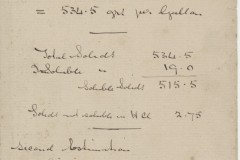 = 534.5 grs per gallon
Total Solids 534.5
Insoluble " 19.0
Soluble Solids 515.5
Solids not soluble in HCl 2.75
Second Estimation